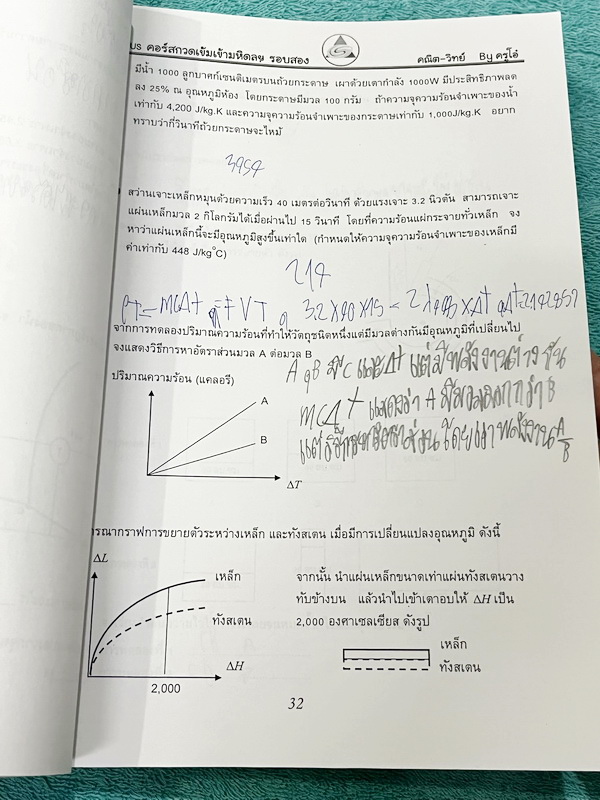 US คอร์สกวดเข้มเข้ามหิดลฯ รอบสอง คณิต-วิทย์ By ครูโอ๋
มีน้ำ 1000 ลูกบาศก์เซนติเมตรบนถ้วยกระดาษ เผาด้วยเตากำลัง 1000W มีประสิทธิภาพลด
ลง 25% ณ อุณหภูมิห้อง โดยกระดาษมีมวล 100 กรัม ถ้าความจุความร้อนจำเพาะของน้ำ
เท่ากับ 4,200 J/kg.K และความจุความร้อนจำเพาะของกระดาษเท่ากับ 1,000J/kg.K อยาก
ทราบว่ากี่วินาทีถ้วยกระดาษจะไหม้
สว่านเจาะเหล็กหมุนด้วยความเร็ว 40 เมตรต่อวินาที ด้วยแรงเจาะ 3.2 นิวตัน สามารถเจาะ
แผ่นเหล็กมวล 2 กิโลกรัมได้เมื่อผ่านไป 15 วินาที โดยที่ความร้อนแผ่กระจายทั่วเหล็ก จง
หาว่าแผ่นเหล็กนี้จะมีอุณหภูมิสูงขึ้นเท่าใด (กำหนดให้ความจุความร้อนจำเพาะของเหล็กมี
ค่าเท่ากับ 448 J/kg°C)
214
จากการทดลองปริมาณความร้อนที่ทำให้วัตถุชนิดหนึ่งแต่มีมวลต่างกันมีอุณหภูมิที่เปลี่ยนไป
จงแสดงวิธีการหาอัตราส่วนมวล A ต่อมวล B
ปริมาณความร้อน (แคลอรี)
A
B
ΔT
รณากราฟการขยายตัวระหว่างเหล็ก และทังสเตน เมื่อมีการเปลี่ยนแปลงอุณหภูมิ ดังนี้
ΔL
เหล็ก
ทังสเตน
ΔH
2,000
จากนั้น นำแผ่นเหล็กขนาดเท่าแผ่นทังสเตนวาง
ทับข้างบน แล้วนำไปเข้าเตาอบให้ ΔH เป็น
2,000 องศาเซลเซียส ดังรูป
เหล็ก
ทังสเตน
32